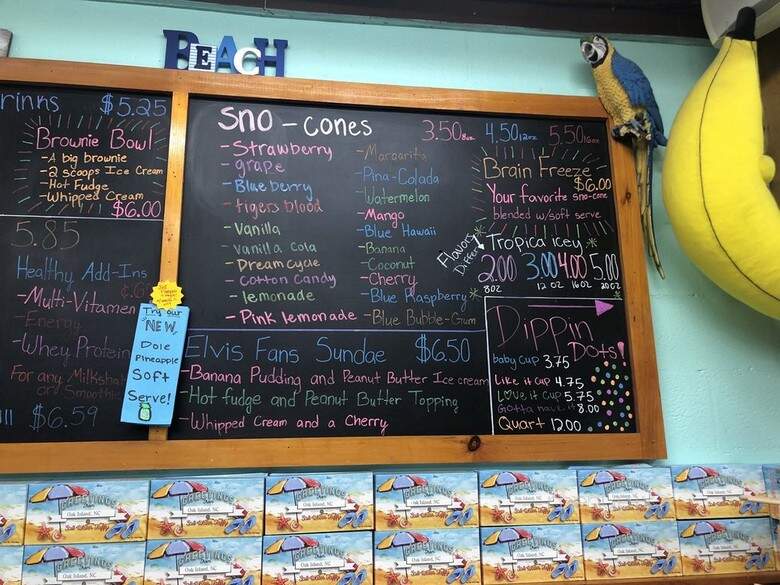 BEACH
rinks $5.25
Brownie Bowl
-A big brownie
-2 scoops Ice Cream
-Hot Fudge
-Whipped Cream
$6.00
5.85
Healthy Add-Ins
-Multi-Vitamen
-Energy
-Whey Protein
For any Milkshake
or Smoothie
$6.59
Try our
NEW
Dole
Pineapple
Soft
Serve!
Sno-Cones 3.50 8oz 4.50 12oz 5.50 16oz
-Strawberry
-grape
-Blueberry
-tigers blood
-Vanilla
-Vanilla Cola
-Dreamcycle
-Cotton Candy
-lemonade
-Pink lemonade
-Margarita
-Pina-Colada
-Watermelon
-Mango
-Blue Hawaii
-Banana
-Coconut
-Cherry
-Blue Raspberry*
-Blue Bubble-Gum
Brain Freeze
$6.00
Your favorite sno-cone
blended w/soft serve
Flavors
Differ
Tropica icey*
2.00 3.00 4.00 5.00
8oz 12oz 16oz 20oz
Elvis Fans Sundae $6.50
-Banana Pudding and Peanut Butter Ice cream
-Hot fudge and Peanut Butter Topping
-Whipped Cream and a Cherry
Dippin
Dots!
baby cup 3.75
Like it cup 4.75
Love it cup 5.75
Gotta have it 8.00
Quart 12.00
GREETINGS
Oak Island, NC